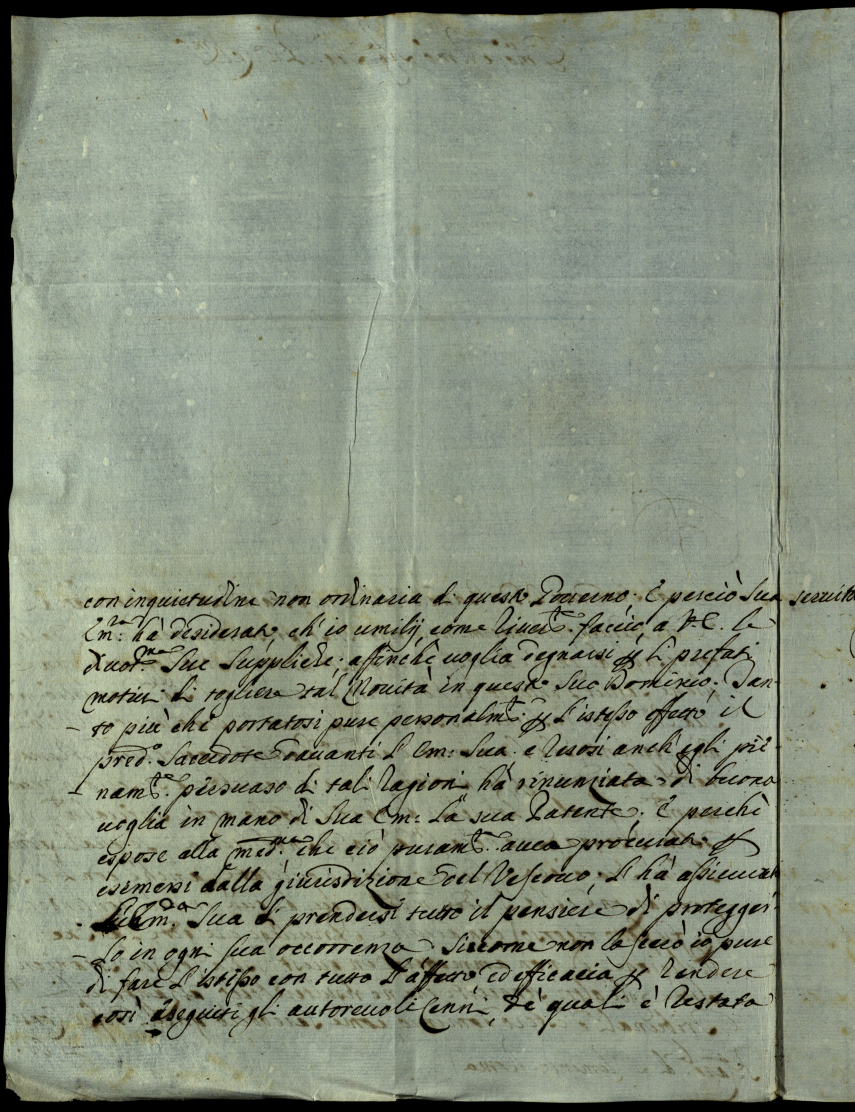 con inquietudine non ordinaria di questo Governo. E perciò Sua servito
Em:za hà desiderato, ch'io umilij, come river:te faccio a V. E. le
divot:me Sue Suppliche; affinchè voglia degnarsi p li prefati
motivi di togliere tal Novità in questo Suo Dominio. Tan-
- to più che portatosi pure personalm:te p l'istesso effetto il
pred:o Sacerdote davanti l'Em: Sua, e resosi anch'egli pie-
- nam:te persuaso di tali ragioni hà rinunziata di buona
voglia in mano di Sua Em: la sua Patente. E perchè
espose alla med:ma che ciò puram:te avea procurato p
esimersi dalla giurisdizione del Vescovo, l'hà assicurato
Em:a Sua di prendersi tutto il pensiere di protegger-
- lo in ogni sua occorrenza. Siccome non lascerò io pure
di fare l'istesso con tutto l'affetto, ed efficacia p rendere
così eseguiti gli autorevoli Cenni, de quali è restata